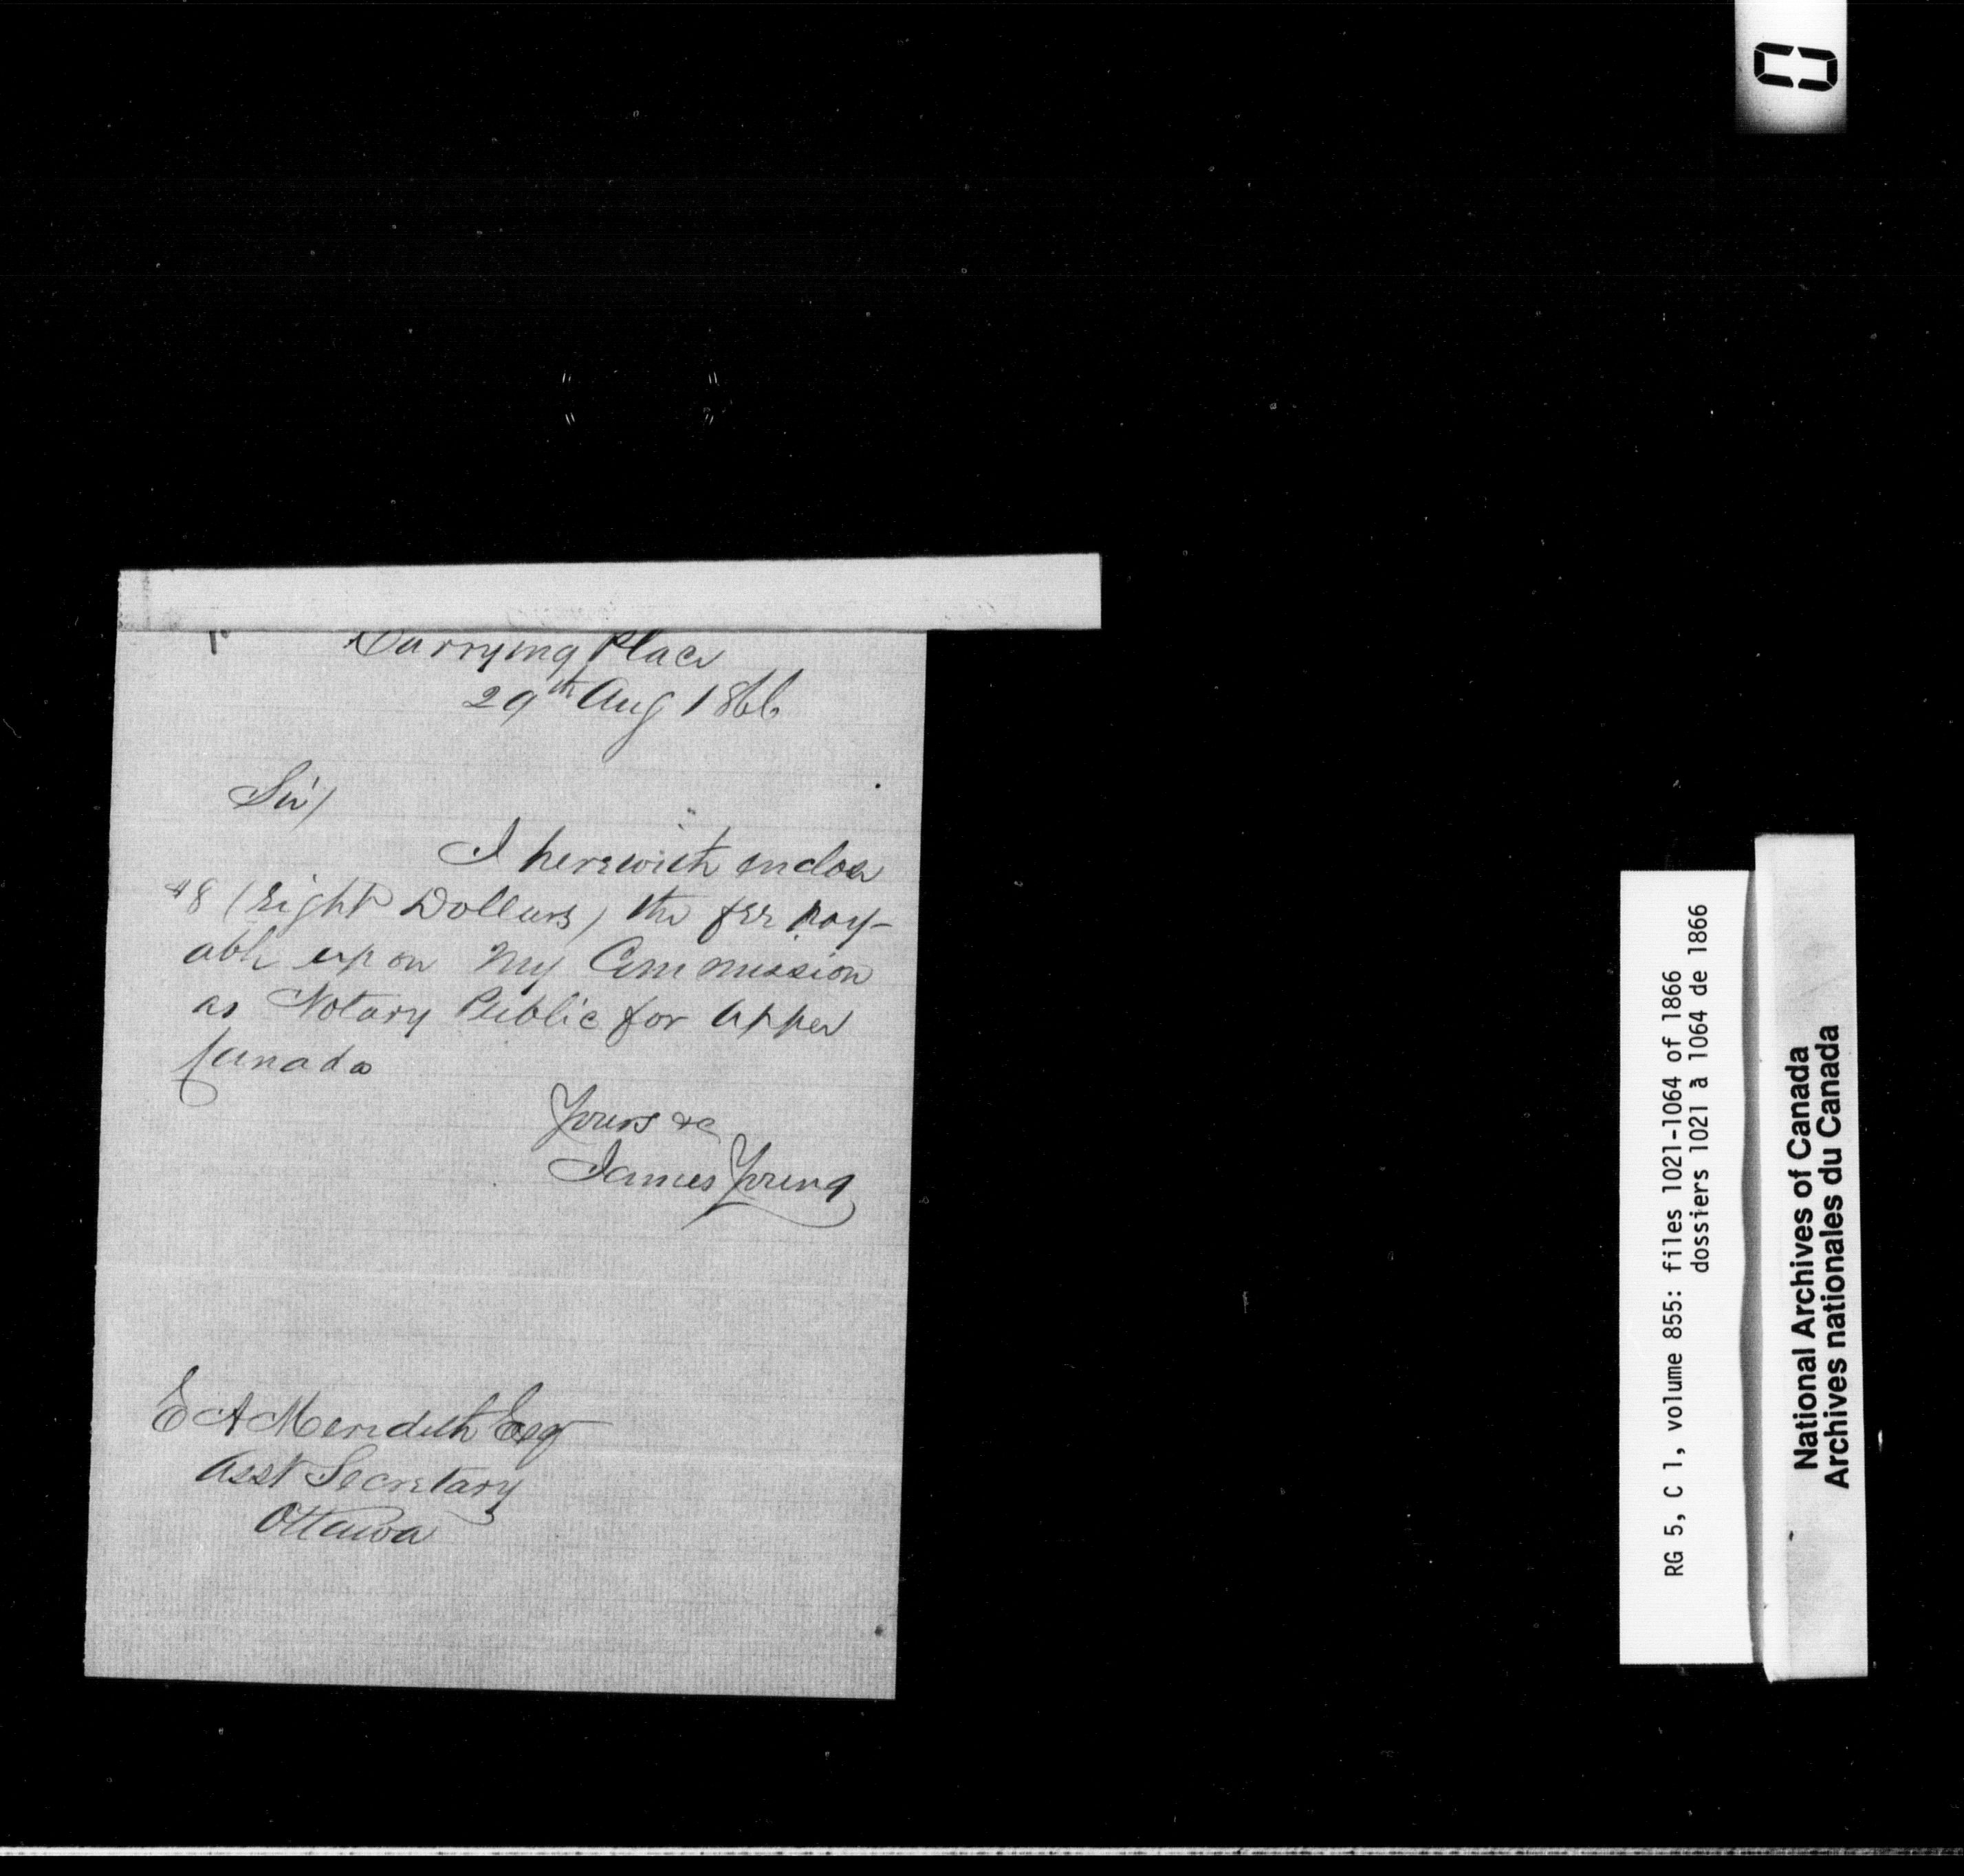 Carrying Place
29th Aug 1866
Sir/
I herewith enclose
$8 (Eight Dollars) the fee pay-
able upon my Commission
as Notary Public for Upper
Canada
Yours &c
James Young
E A Meredith Esq
Asst Secretary
Ottawa
RG 5, C 1, volume 855: files 1021-1064 of 1866
dossiers 1021 à 1064 de 1866
National Archives of Canada
Archives nationales du Canada